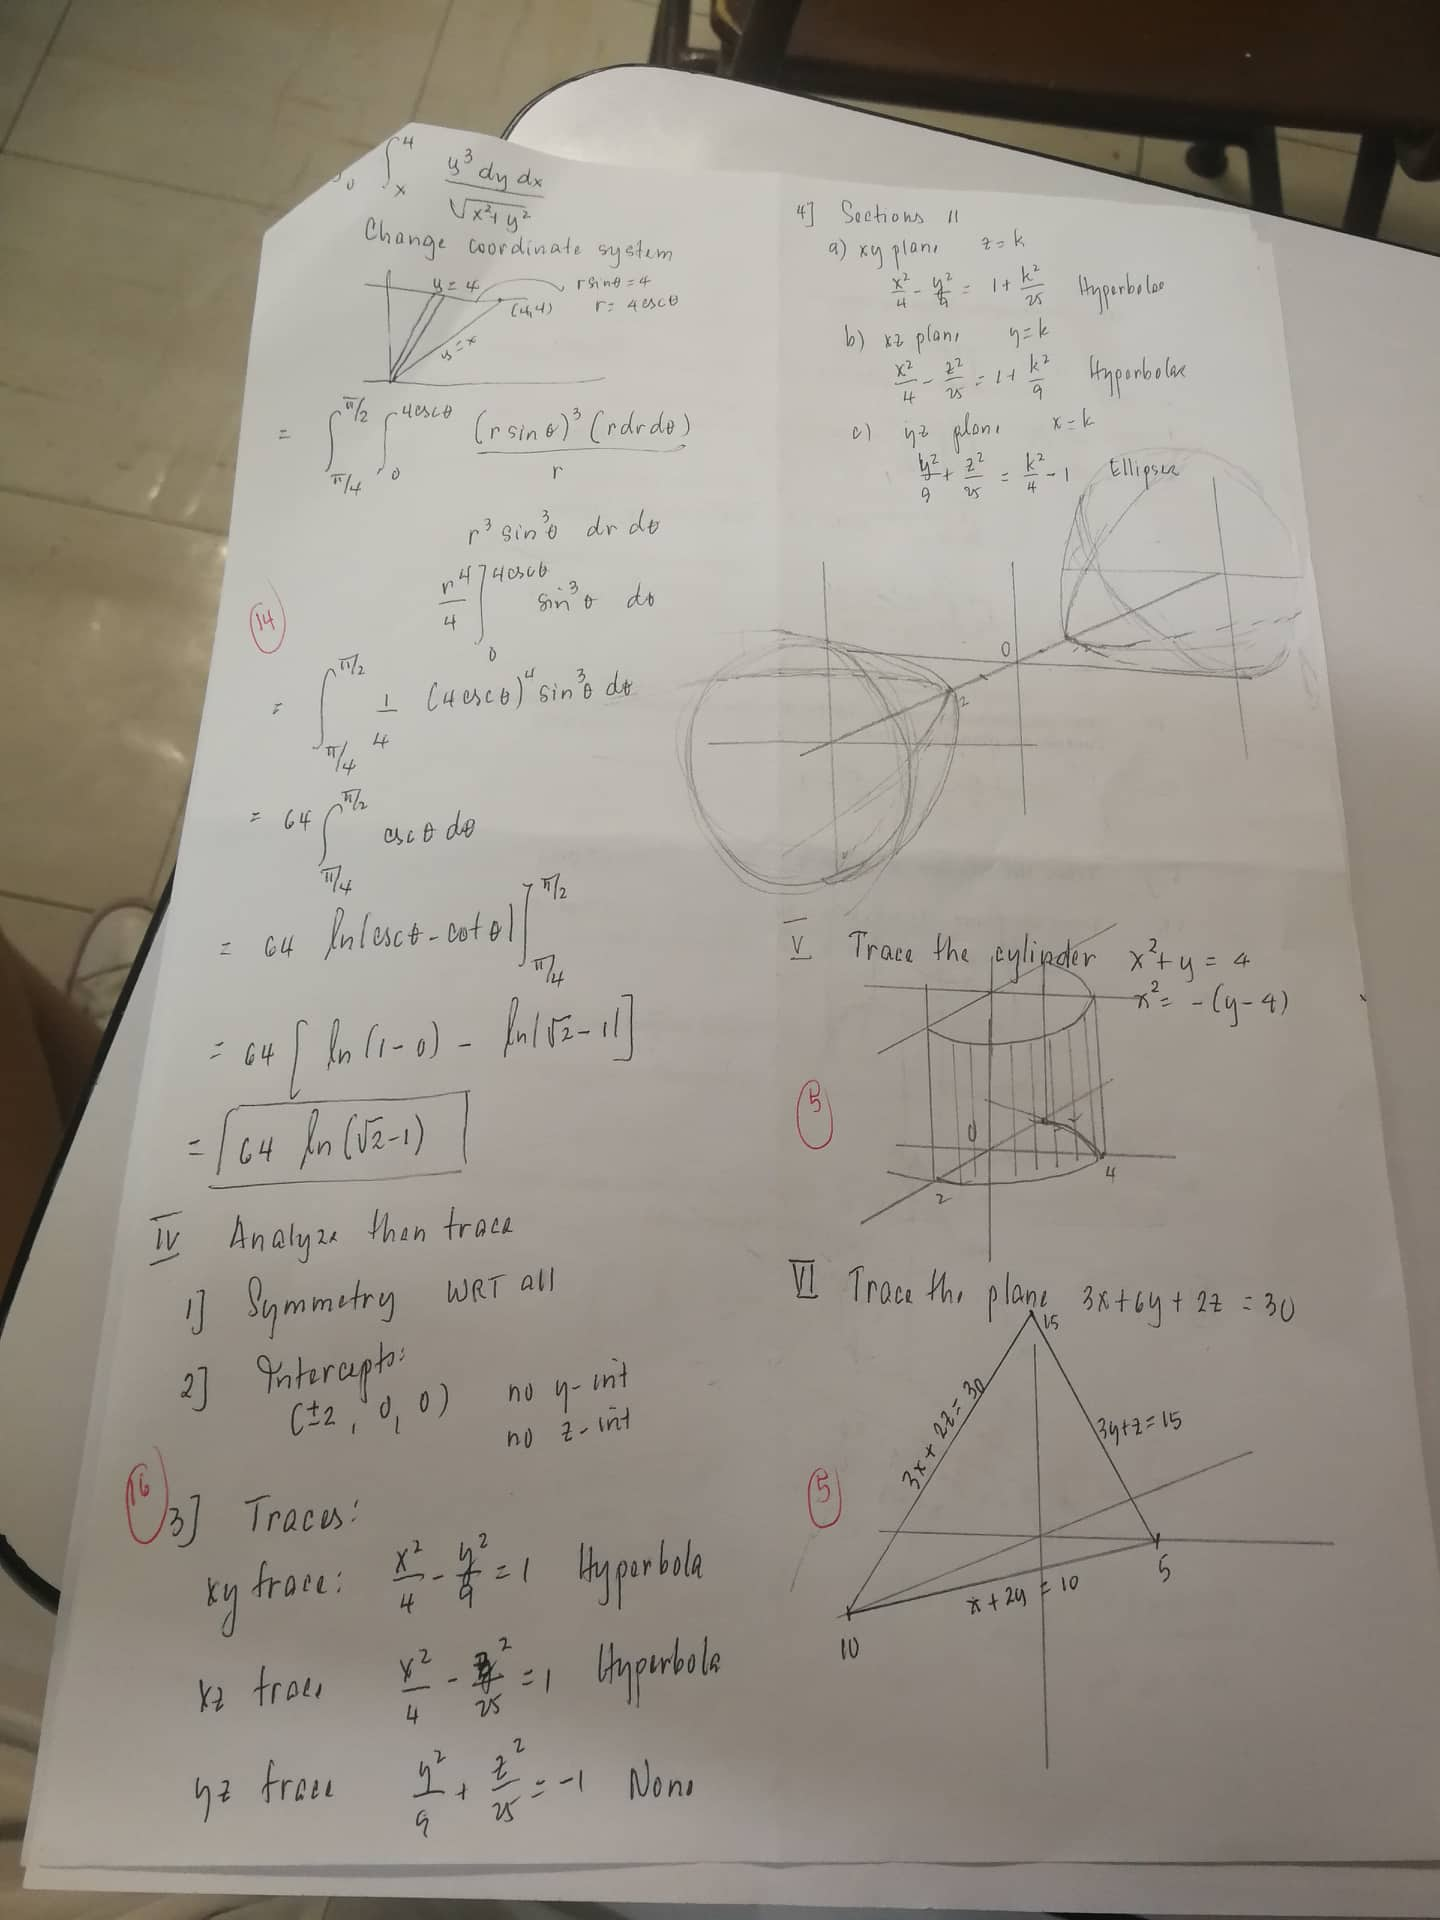 ∫₀ ∫ₓ⁴ y³ dy dx / √(x²+y²)
Change coordinate system
y = 4
r sinθ = 4
(4,4)
r = 4cscθ
y = x
= ∫_{π/4}^{π/2} ∫₀^{4cscθ} (r sin θ)³ (r dr dθ) / r
r³ sin³θ dr dθ
r⁴/4 ]₀^{4cscθ} sin³θ dθ
14
= ∫_{π/4}^{π/2} 1/4 (4cscθ)⁴ sin³θ dθ
= 64 ∫_{π/4}^{π/2} csc θ dθ
= 64 ln|cscθ - cot θ| ]_{π/4}^{π/2}
= 64 [ ln(1-0) - ln|√2 - 1| ]
= 64 ln (√2-1)
IV Analyze then trace
1] Symmetry WRT all
2] Intercepts:
(±2, 0, 0) no y-int
no z-int
16
3] Traces:
xy trace: x²/4 - y²/9 = 1 Hyperbola
xz trace x²/4 - z²/25 = 1 Hyperbola
yz trace y²/9 + z²/25 = -1 None
4] Sections //
a) xy plane z = k
x²/4 - y²/9 = 1 + k²/25 Hyperbolae
b) xz plane y = k
x²/4 - z²/25 = 1 + k²/9 Hyperbolae
c) yz plane x = k
y²/9 + z²/25 = k²/4 - 1 Ellipses
0
2
V Trace the cylinder x² + y = 4
x² = -(y-4)
5
0
2
4
VI Trace the plane 3x + 6y + 2z = 30
15
3x + 2z = 30
3y+z = 15
5
5
x + 2y = 10
10